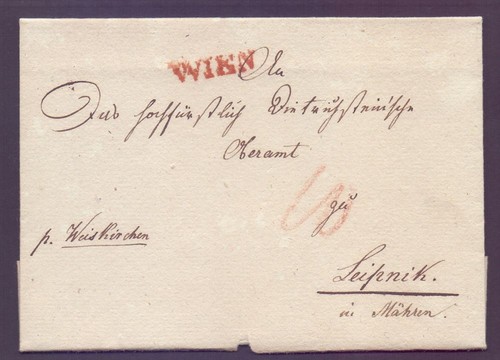 WIEN
An
Das hochfürstlich Dietrichsteinische
Oberamt
zu
p. Weiskirchen
Leipnik.
in Mähren.